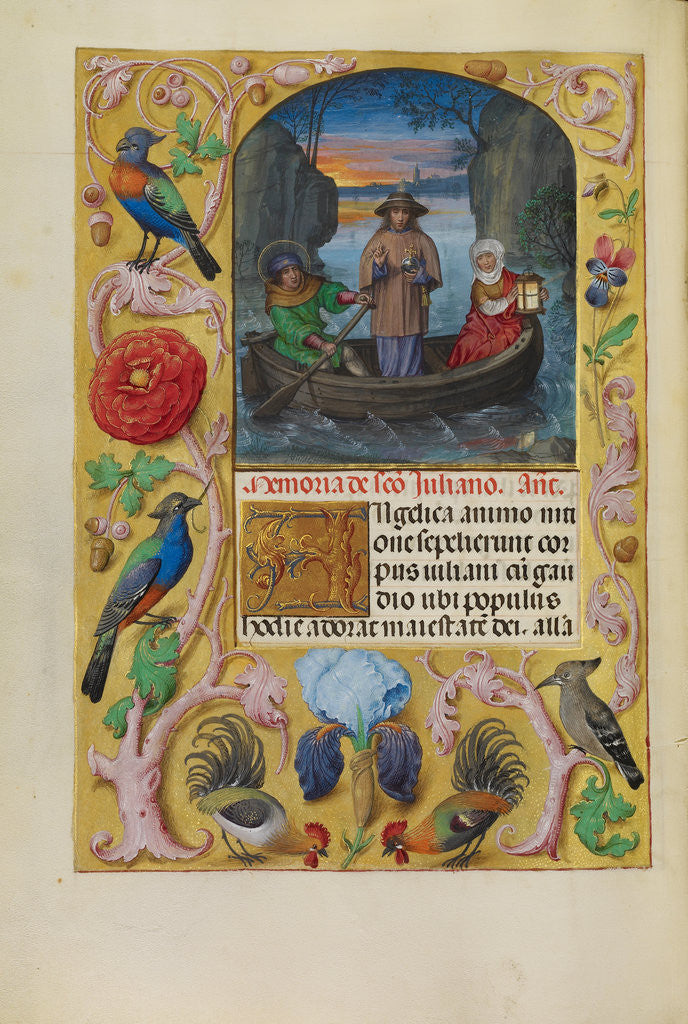 Memoria de scō Iuliano. Ant.
Angelica animo niti
one sepelierunt cor
pus iuliani cū gau
dio ubi populus
hodie adorat maiestatē dei. alla